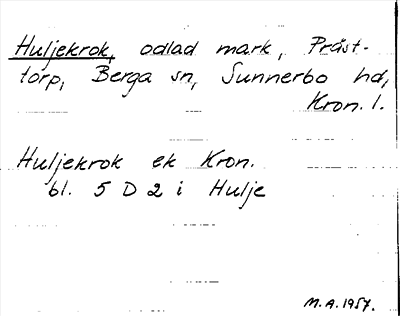 Huljekrok, odlad mark, Präst-
torp, Berga sn, Sunnerbo hd,
Kron. l.
Huljekrok ek Kron.
bl. 5 D 2 i Hulje
M.A. 1957.